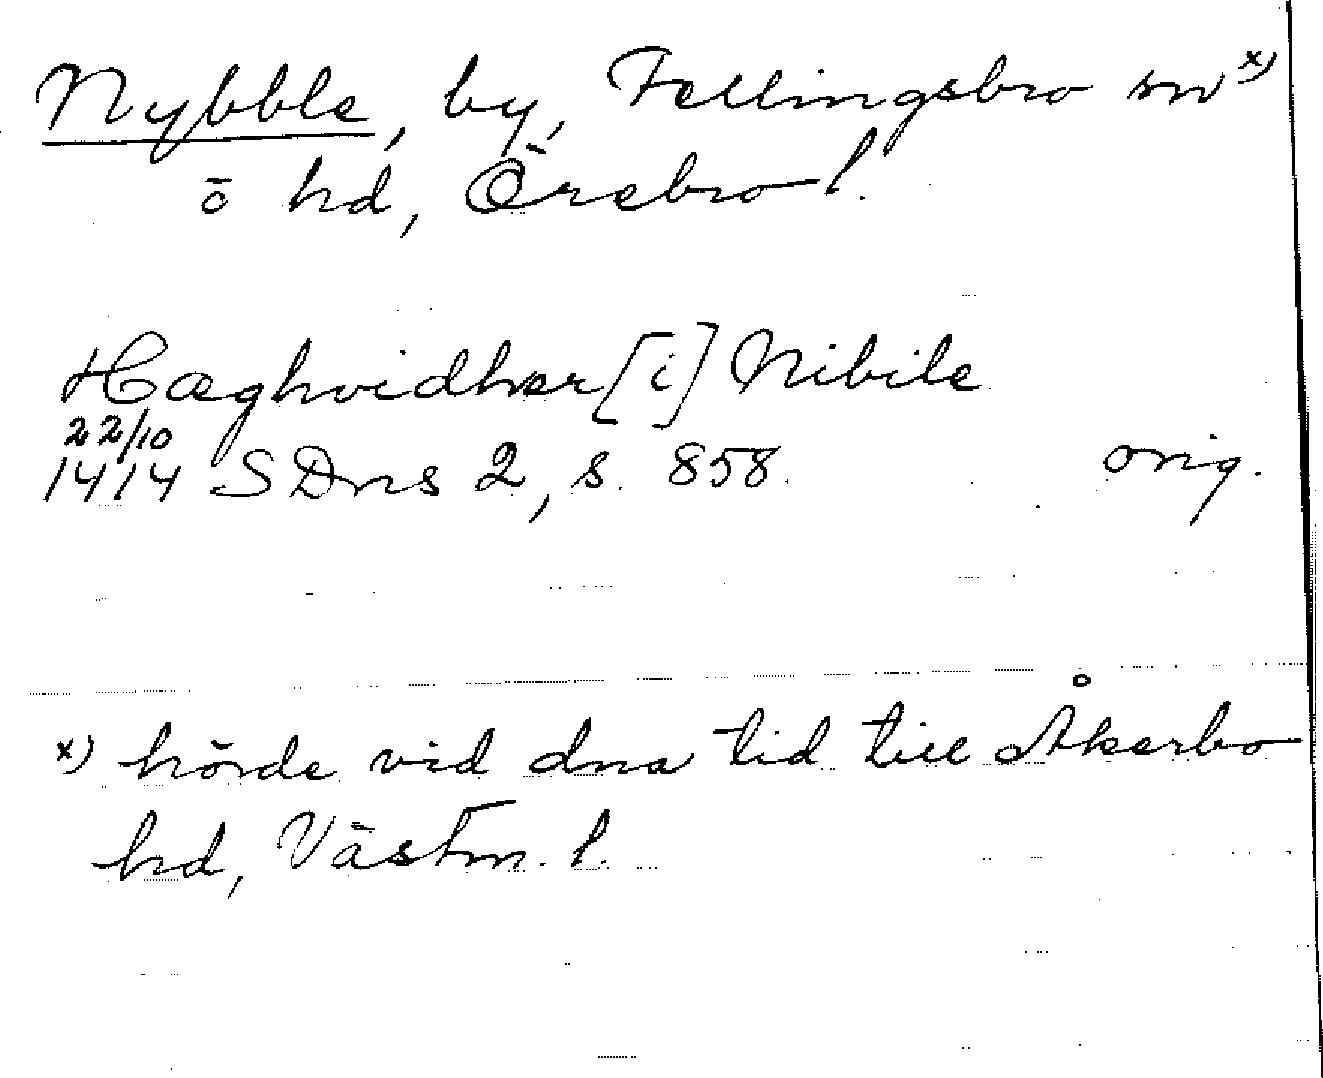 Nybble, by, Fellingsbro sn x)
ö hd, Örebro l.
Hæghvidher [i] Nibile
22/10
1414 SDns 2, s. 858. orig.
x) hörde vid dna tid till Åkerbo
hd, Västm. l.